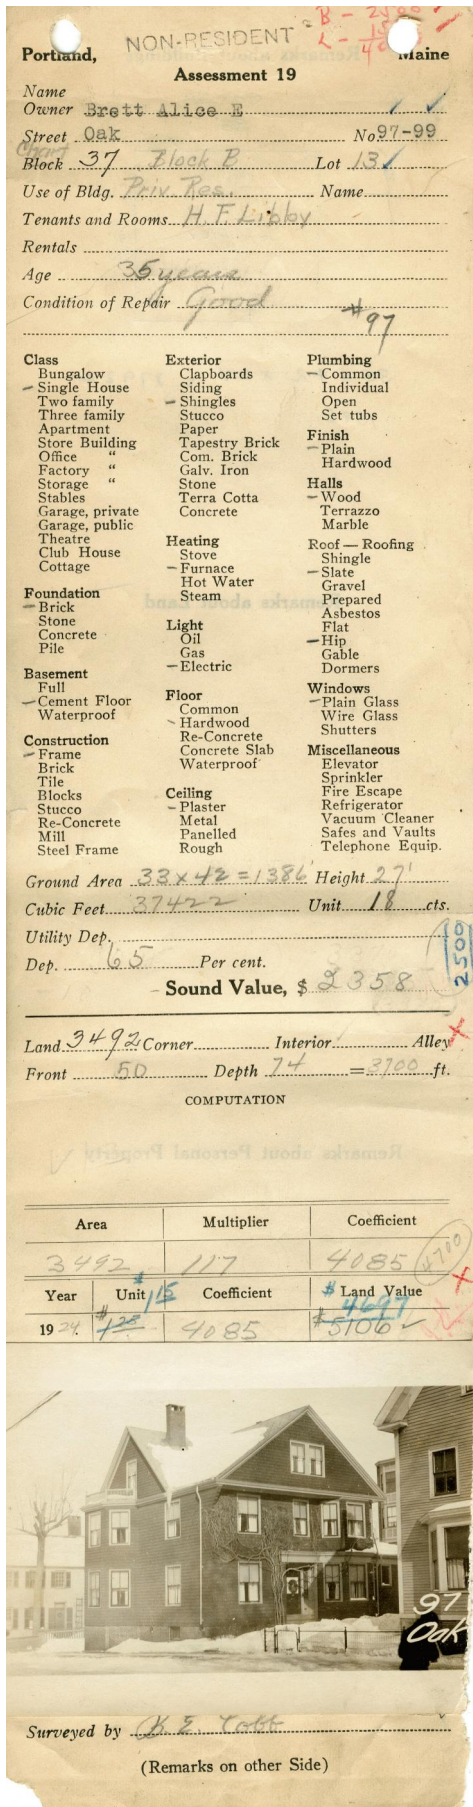 NON-RESIDENT
B - 2500
Portland, Maine
Assessment 19
Name
Owner Brett Alice E
Street Oak No 97-99
Chart
Block 37 Block B Lot 13
Use of Bldg. Priv. Res. Name
Tenants and Rooms H. F. Libby
Rentals
Age 35 years
Condition of Repair Good
#97
Class
Bungalow
Single House
Two family
Three family
Apartment
Store Building
Office "
Factory "
Storage "
Stables
Garage, private
Garage, public
Theatre
Club House
Cottage
Foundation
Brick
Stone
Concrete
Pile
Basement
Full
Cement Floor
Waterproof
Construction
Frame
Brick
Tile
Blocks
Stucco
Re-Concrete
Mill
Steel Frame
Exterior
Clapboards
Siding
Shingles
Stucco
Paper
Tapestry Brick
Com. Brick
Galv. Iron
Stone
Terra Cotta
Concrete
Heating
Stove
Furnace
Hot Water
Steam
Light
Oil
Gas
Electric
Floor
Common
Hardwood
Re-Concrete
Concrete Slab
Waterproof
Ceiling
Plaster
Metal
Panelled
Rough
Plumbing
Common
Individual
Open
Set tubs
Finish
Plain
Hardwood
Halls
Wood
Terrazzo
Marble
Roof — Roofing
Shingle
Slate
Gravel
Prepared
Asbestos
Flat
Hip
Gable
Dormers
Windows
Plain Glass
Wire Glass
Shutters
Miscellaneous
Elevator
Sprinkler
Fire Escape
Refrigerator
Vacuum Cleaner
Safes and Vaults
Telephone Equip.
Ground Area 33 x 42 = 1386' Height 27'
Cubic Feet 37422 Unit 18 cts.
Utility Dep.
Dep. 65 Per cent.
2500
Sound Value, $ 2358
Land 3492 Corner Interior Alley
Front 50 Depth 74 = 3700 ft.
COMPUTATION
Remarks about Personal Property
Area Multiplier Coefficient
3492 117 4085
4700
Year Unit Coefficient Land Value
$115 $4697
1924. $1.25 4085 $5106
97
Oak
Surveyed by K. E. Cobb
(Remarks on other Side)